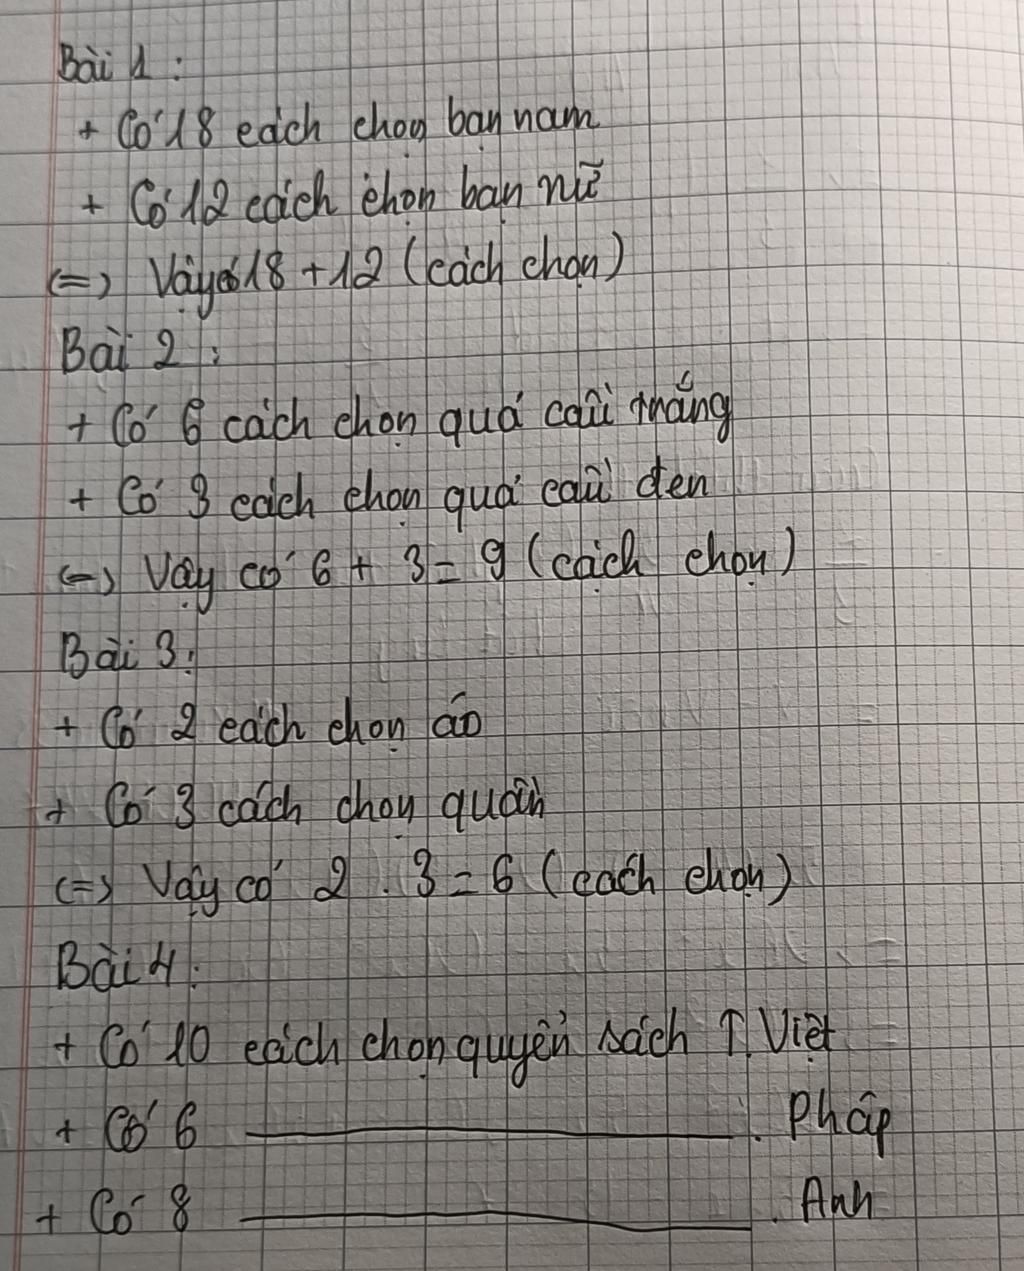 Bài 1 :
+ Có 18 cách chọn bạn nam
+ Có 12 cách chọn bạn nữ
(=) Vậy có 18 + 12 (cách chọn)
Bài 2 :
+ Có 6 cách chọn quả cầu trắng
+ Có 3 cách chọn quả cầu đen
(=) Vậy có 6 + 3 = 9 (cách chọn)
Bài 3 :
+ Có 2 cách chọn áo
+ Có 3 cách chọn quần
(=) Vậy có 2 . 3 = 6 (cách chọn)
Bài 4 :
+ Có 10 cách chọn quyển sách T. Việt
+ Có 6 ————— . Pháp
+ Có 8 ————— . Anh